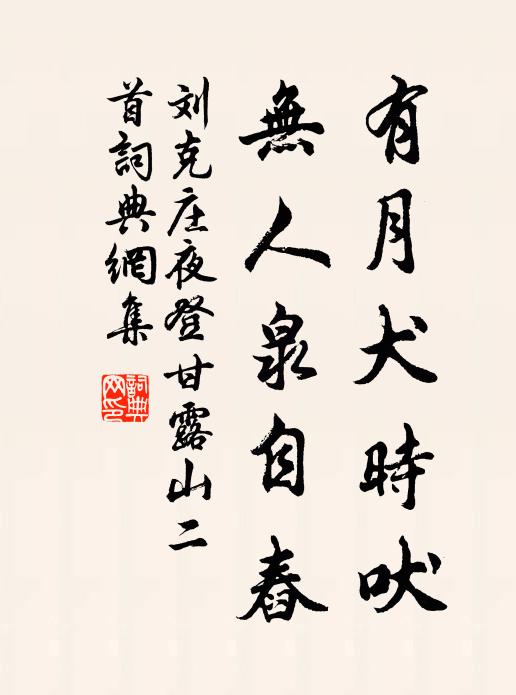 有月犬時吠
無人泉自舂
刘克庄夜登甘露山二
首詞典網集
詞典网印